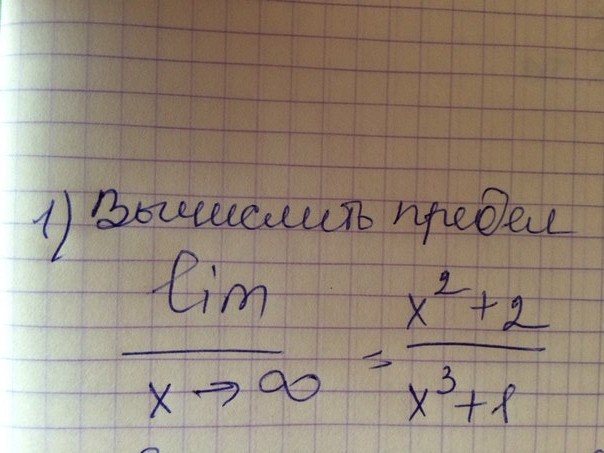 1) Вычислить предел
lim x² + 2
——— = ———
x → ∞ x³ + 1